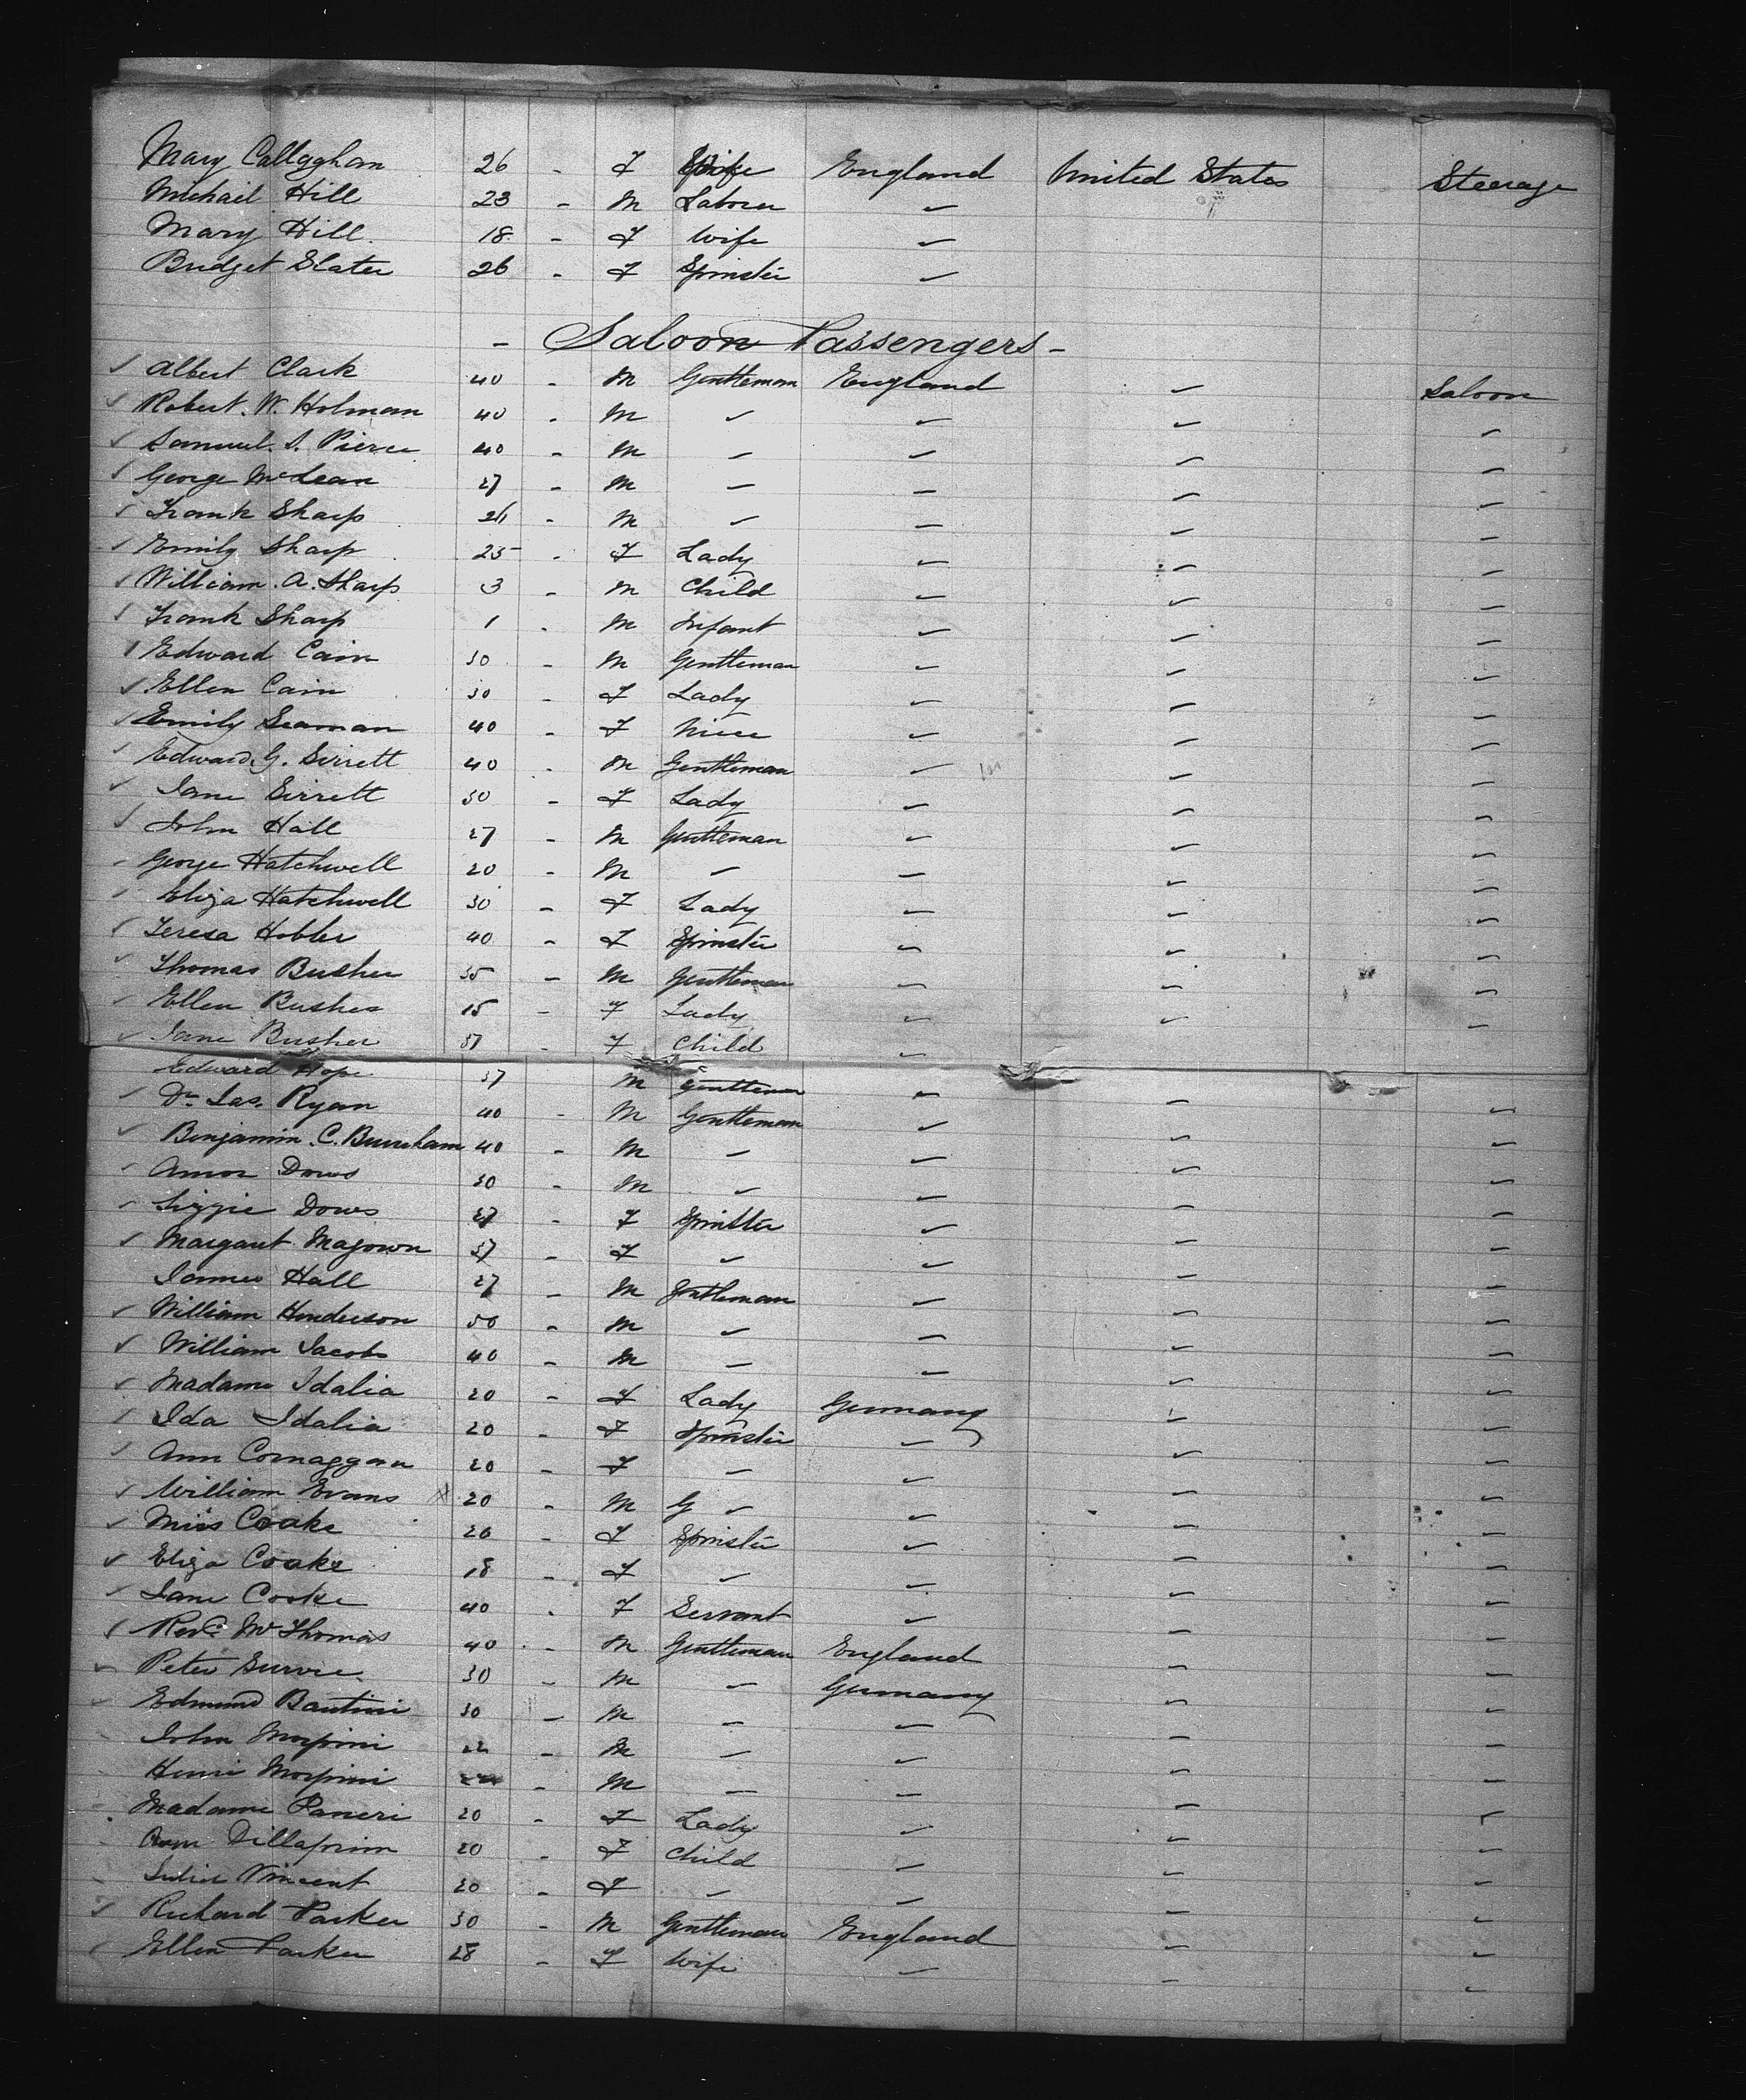 Mary Callaghan 26 - F Wife England United States Steerage
Michail Hill 23 - M Laborer ✓
Mary Hill. 18 - F Wife ✓
Bridget Slater 26 - F Spinster ✓
- Saloon Passengers -
✓ Albert Clark 40 - M Gentleman England ✓ Saloon
✓ Robert. W. Holman 40 - M ✓ ✓ ✓ ✓
✓ Samuel. S. Pierce 40 - M ✓ ✓ ✓ ✓
✓ George McLean 27 - M ✓ ✓ ✓ ✓
✓ Frank Sharp 26 - M ✓ ✓ ✓ ✓
✓ Emily Sharp 25 - F Lady ✓ ✓ ✓
✓ William. A. Sharp 3 - M Child ✓ ✓ ✓
✓ Frank Sharp 1 - M Infant ✓ ✓ ✓
✓ Edward Cain 30 - M Gentleman ✓ ✓ ✓
✓ Ellen Cain 30 - F Lady ✓ ✓ ✓
✓ Emily Seaman 40 - F Niece ✓ ✓ ✓
✓ Edward. G. Sirrett 40 - M Gentleman ✓ ✓ ✓
✓ Jane Sirrett 30 - F Lady ✓ ✓ ✓
✓ John Hall 27 - M Gentleman ✓ ✓ ✓
✓ George Hatchwell 20 - M ✓ ✓ ✓ ✓
✓ Eliza Hatchwell 30 - F Lady ✓ ✓ ✓
✓ Teresa Hobler 40 - F Spinster ✓ ✓ ✓
✓ Thomas Busher 35 - M Gentleman ✓ ✓ ✓
✓ Ellen Busher 15 - F Lady ✓ ✓ ✓
✓ Jane Busher - F Child ✓
Edward Hope 37 M Gentleman ✓ ✓ ✓
✓ Dr. Jas. Ryan 40 - M Gentleman ✓ ✓ ✓
✓ Benjamin. C. Burnham 40 - M ✓ ✓ ✓ ✓
✓ Amos Dows 30 - M ✓ ✓ ✓ ✓
✓ Lizzie Dows 27 - F Spinster ✓ ✓ ✓
✓ Margaret Magown 37 - F ✓ ✓ ✓ ✓
James Hall 27 - M Gentleman ✓ ✓ ✓
✓ William Henderson 50 - M ✓ ✓ ✓ ✓
✓ William Jacobs 40 - M ✓ ✓ ✓ ✓
✓ Madame Idalia 20 - F Lady Germany ✓ ✓
✓ Ida Idalia 20 - F Spinster ✓ ✓ ✓
✓ Ann 20 - F ✓ ✓ ✓ ✓
✓ William Evans X 20 - M G ✓ ✓ ✓ ✓
✓ Miss Coake 20 - F Spinster ✓ ✓ ✓
✓ Eliza Coake 18 - F ✓ ✓ ✓ ✓
✓ Jane Cooke 40 - F Servant ✓ ✓ ✓
✓ Revd. Mr Thomas 40 - M Gentleman England ✓ ✓
✓ Peter 30 - M ✓ Germany ✓ ✓
✓ Edmund 30 - M ✓ ✓ ✓ ✓
John 22 - M ✓ ✓ ✓ ✓
Henri - M ✓ ✓ ✓ ✓
Madame 20 - F Lady ✓ ✓ ✓
Ann 20 - F Child ✓ ✓ ✓
Vincent 20 - F ✓ ✓ ✓ ✓
✓ Richard Parker 30 - M Gentleman England ✓ ✓
✓ Ellen Parker 28 - F Wife ✓ ✓ ✓